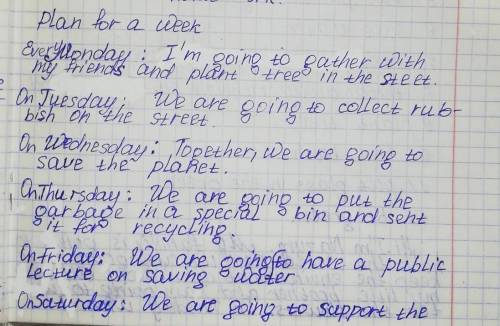 Plan for a week
Every Monday: I'm going to gather with
my friends and plant tree in the steet.
On Tuesday: We are going to collect rub-
bish on the street.
On Wednesday: Together, we are going to
save the planet.
On Thursday: We are going to put the
garbage in a special bin and sent
it for recycling.
On Friday: We are going to have a public
lecture on saving water
On Saturday: We are going to support the